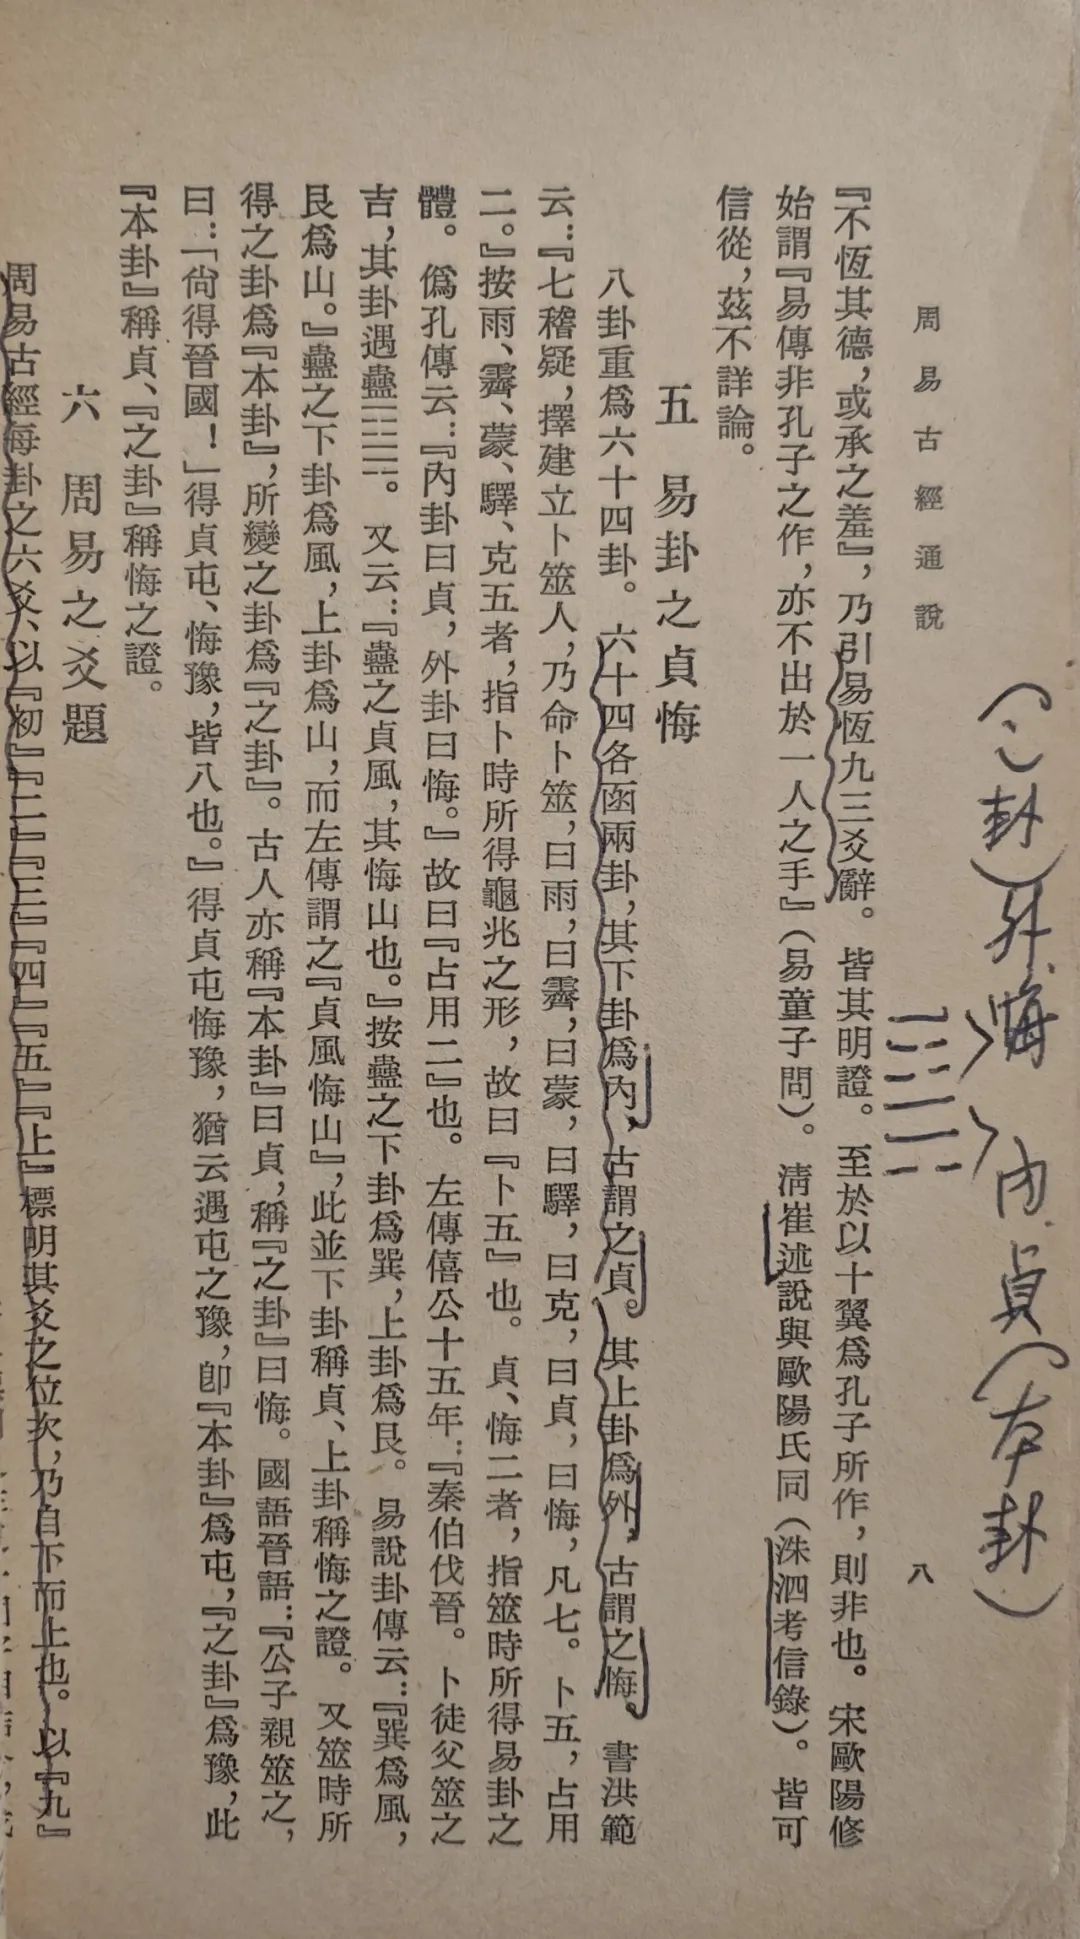 (之卦)外悔 內貞(本卦)
周易古經通說
八
『不恆其德,或承之羞』,乃引易恆九三爻辭。皆其明證。至於以十翼爲孔子所作,則非也。宋歐陽修
始謂『易傳非孔子之作,亦不出於一人之手』(易童子問)。清崔述說與歐陽氏同(洙泗考信錄)。皆可
信從,茲不詳論。
五 易卦之貞悔
八卦重爲六十四卦。六十四各函兩卦,其下卦爲內,古謂之貞。其上卦爲外,古謂之悔。書洪範
云:『七稽疑,擇建立卜筮人,乃命卜筮,曰雨,曰霽,曰蒙,曰驛,曰克,曰貞,曰悔,凡七。卜五,占用
二。』按雨、霽、蒙、驛、克五者,指卜時所得龜兆之形,故曰『卜五』也。貞、悔二者,指筮時所得易卦之
體。僞孔傳云:『內卦曰貞,外卦曰悔。』故曰『占用二』也。左傳僖公十五年:『秦伯伐晉。卜徒父筮之
吉,其卦遇蠱䷑。又云:『蠱之貞風,其悔山也。』按蠱之下卦爲巽,上卦爲艮。易說卦傳云:『巽爲風,
艮爲山。』蠱之下卦爲風,上卦爲山,而左傳謂之『貞風悔山』,此並下卦稱貞、上卦稱悔之證。又筮時所
得之卦爲『本卦』,所變之卦爲『之卦』。古人亦稱『本卦』曰貞,稱『之卦』曰悔。國語晉語:『公子親筮之,
曰:「尚得晉國!」得貞屯、悔豫,皆八也。』得貞屯悔豫,猶云遇屯之豫,卽『本卦』爲屯,『之卦』爲豫,此
『本卦』稱貞、『之卦』稱悔之證。
六 周易之爻題
周易古經每卦之六爻、以『初』『二』『三』『四』『五』『上』標明其爻之位次,乃自下而上也。以『九』